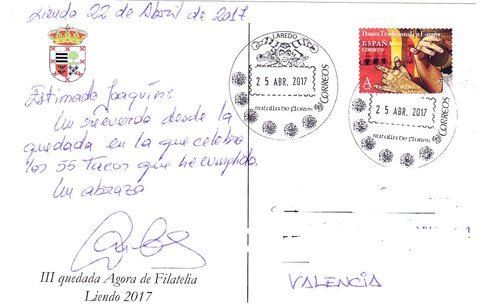 Liendo 22 de Abril de 2017
Estimado Joaquín:
Un recuerdo desde la
quedada en la que celebro
los 55 Tacos que he cumplido.
Un abrazo
III quedada Agora de Filatelia
Liendo 2017
LAREDO
25 ABR. 2017
BATALLA DE FLORES
CORREOS
Danza Tradicional en España
ESPAÑA
CORREOS
A
25 ABR. 2017
BATALLA DE FLORES
CORREOS
VALENCIA